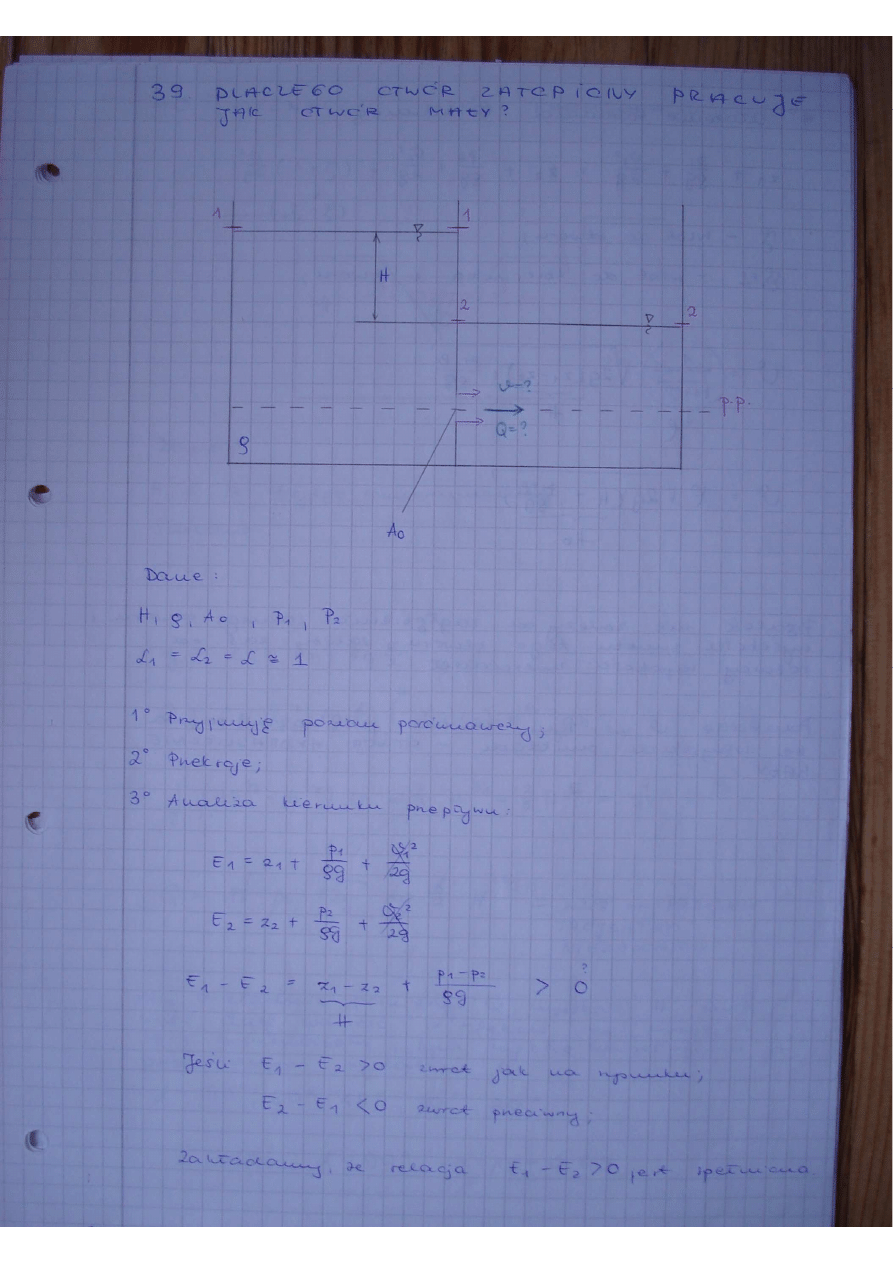 39 DLACZEGO OTWÓR ZATOPIONY PRACUJE
JAK OTWÓR MAŁY?
1
1
H
2
2
v=?
p.p.
Q=?
ρ
A₀
Dane:
H, ρ, A₀, P₁, P₂
α₁ = α₂ = α ≈ 1
1° Przyjmuję poziom porównawczy;
2° Przekroje;
3° Analiza kierunku przepływu:
E₁ = z₁ + p₁/ρg + v₁²/2g
E₂ = z₂ + p₂/ρg + v₂²/2g
E₁ - E₂ = z₁ - z₂ + (p₁ - p₂)/ρg > 0
?
H
Jeśli E₁ - E₂ > 0 zwrot jak na rysunku;
E₂ - E₁ < 0 zwrot przeciwny;
Zakładamy, że relacja E₁ - E₂ > 0 jest spełniona